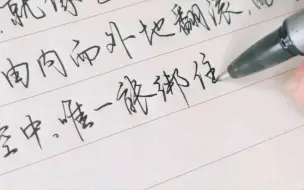 由内而外地翻滚,
空中,唯一能绑住